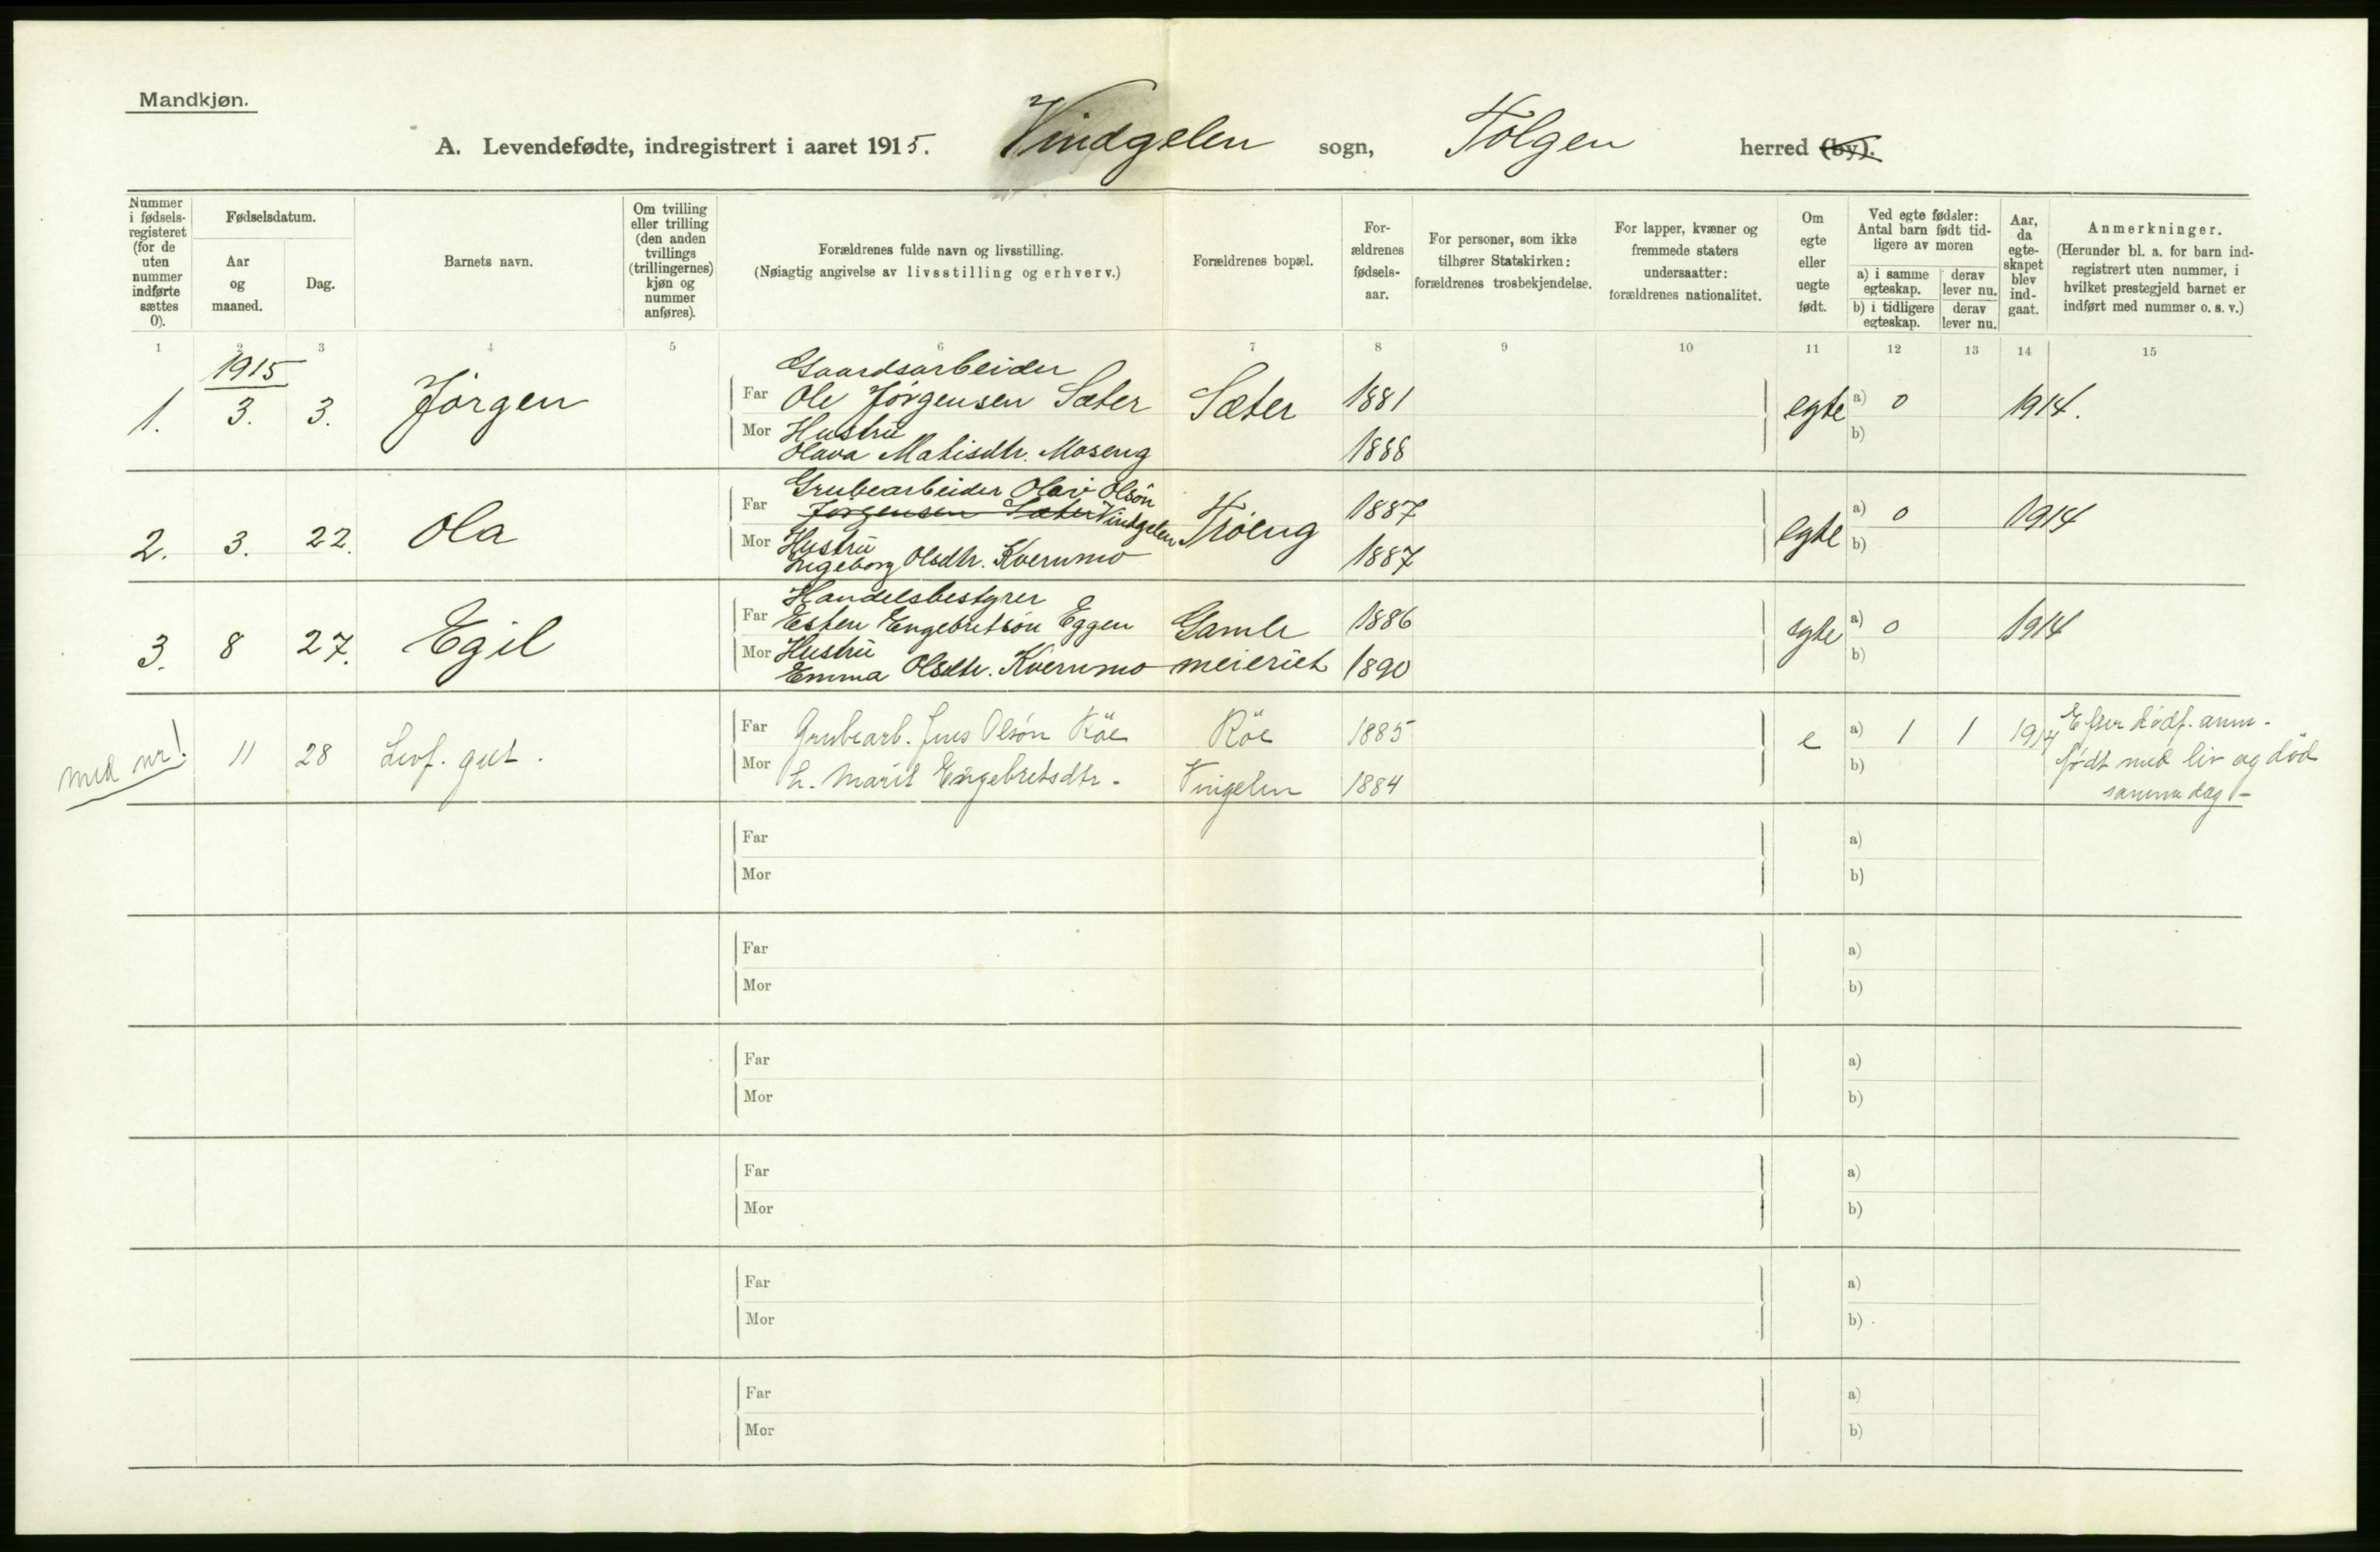 Mandkjøn.
A. Levendefødte, indregistrert i aaret 1915. Vindgelen sogn, Tolgen herred (by).
Nummer i fødsels-registeret (for de uten nummer indførte sættes 0).
Fødselsdatum.
Aar og maaned.
Dag.
Barnets navn.
Om tvilling eller trilling (den anden tvillings (trillingernes) kjøn og nummer anføres).
Forældrenes fulde navn og livsstilling.
(Nøiagtig angivelse av livsstilling og erhverv.)
Forældrenes bopæl.
For-ældrenes fødsels-aar.
For personer, som ikke tilhører Statskirken: forældrenes trosbekjendelse.
For lapper, kvæner og fremmede staters undersaatter: forældrenes nationalitet.
Om egte eller uegte født.
Ved egte fødsler: Antal barn født tid-ligere av moren
a) i samme egteskap.
derav lever nu.
b) i tidligere egteskap.
derav lever nu.
Aar, da egte-skapet blev ind-gaat.
Anmerkninger.
(Herunder bl. a. for barn ind-registrert uten nummer, i hvilket prestegjeld barnet er indført med nummer o. s. v.)
1 2 3 4 5 6 7 8 9 10 11 12 13 14 15
1915
Gaardsarbeider
1. 3. 3. Jörgen Far Ole Jörgensen Sæter Sæter 1881 egte a) 0 1914.
Mor Hustru b)
Olava Matisdtr. Moseng 1888
Grubearbeider Olav Olsön
2. 3. 22. Ola Far Jörgensen Sæter Vindgelen Tröeng 1887 egte a) 0 1914
Mor Hustru b)
Ingeborg Olsdtr. Kvernmo 1887
Handelsbestyrer
3. 8 27. Egil Far Esten Engebretsön Eggen Gamle 1886 egte a) 0 1914
Mor Hustru b)
Emma Olsdtr. Kvernmo meieriet 1890
med nr! 11 28 Levf. gut. Far Grubearb. Jens Olsön Röe Röe 1885 e a) 1 1 1914 Efter dödf. anm.
Mor h. Marit Engebretsdtr. Vingelen 1884 b) födt med liv og död
samme dag -
Far a)
Mor b)
Far a)
Mor b)
Far a)
Mor b)
Far a)
Mor b)
Far a)
Mor b)
Far a)
Mor b)